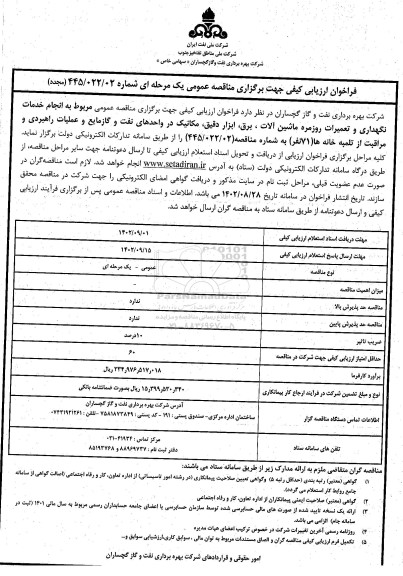 شرکت ملی نفت ایران
شرکت ملی مناطق نفتخیز جنوب
شرکت بهره برداری نفت و گاز گچساران « سهامی خاص »
فراخوان ارزیابی کیفی جهت برگزاری مناقصه عمومی یک مرحله ای شماره ۴۴۵/۰۲۲/۰۲ (مجدد)
شرکت بهره برداری نفت و گاز گچساران در نظر دارد فراخوان ارزیابی کیفی جهت برگزاری مناقصه عمومی مربوط به انجام خدمات
نگهداری و تعمیرات روزمره ماشین آلات ، برق، ابزار دقیق، مکانیک در واحدهای نفت و گازمایع و عملیات راهبردی و
مراقبت از تلمبه خانه ها(۷۱نفر) به شماره مناقصه(۴۴۵/۰۲۲/۰۲) را از طریق سامانه تدارکات الکترونیکی دولت برگزار نماید.
کلیه مراحل برگزاری فراخوان ارزیابی از دریافت و تحویل اسناد استعلام ارزیابی کیفی تا ارسال دعوتنامه جهت سایر مراحل مناقصه، از
طریق درگاه سامانه تدارکات الکترونیکی دولت (ستاد) به آدرس www.setadiran.ir انجام خواهد شد. لازم است مناقصه‌گران در
صورت عدم عضویت قبلی، مراحل ثبت نام در سایت مذکور و دریافت گواهی امضای الکترونیکی را جهت شرکت در مناقصه محقق
سازند. تاریخ انتشار فراخوان در سامانه تاریخ ۱۴۰۲/۰۸/۲۸ می باشد. اطلاعات و اسناد مناقصه عمومی پس از برگزاری فرآیند ارزیابی
کیفی و ارسال دعوتنامه از طریق سامانه ستاد به مناقصه گران ارسال خواهد شد.
مهلت دریافت اسناد استعلام ارزیابی کیفی ۱۴۰۲/۰۹/۰۱
مهلت ارسال پاسخ استعلام ارزیابی کیفی ۱۴۰۲/۰۹/۱۵
نوع مناقصه عمومی - یک مرحله ای
میزان اهمیت مناقصه -
مناقصه حد پذیرش بالا ندارد
مناقصه حد پذیرش پایین ندارد
ضریب تاثیر ۱۰درصد
حداقل امتیاز ارزیابی کیفی جهت شرکت در مناقصه ۶۰
برآورد کارفرما ۲۳۴,۹۷۶,۵۱۷,۰۱۸ ریال
نوع و مبلغ تضمین شرکت در فرآیند ارجاع کار پیمانکاری ۱۵,۳۹۹,۵۳۰,۳۴۰ ریال بصورت ضمانتنامه بانکی
اطلاعات تماس دستگاه مناقصه گزار آدرس شرکت بهره برداری نفت و گاز گچساران
ساختمان اداره مرکزی-صندوق پستی : ۱۹۱ - کد پستی : ۷۵۸۱۸۷۳۸۴۹ -تلفن : ۰۷۴۳۱۹۲۱۲۶۱
تلفن های سامانه ستاد مرکز تماس : ۴۱۹۳۴-۰۲۱
دفتر ثبت نام : ۸۸۹۶۹۷۳۷ و ۸۵۱۹۳۷۶۸
مناقصه گران متقاضی ملزم به ارائه مدارک زیر از طریق سامانه ستاد می باشند:
۱) گواهی (معتبر) رتبه بندی (حداقل رتبه ۵) وگواهی تعیین صلاحیت پیمانکاری (در رشته امور تاسیساتی) از اداره تعاون، کار و رفاه اجتماعی (اصالت گواهی از سامانه
جامع روابط کار استعلام می گردد).
۲) گواهی (معتبر) صلاحیت ایمنی پیمانکاران از اداره تعاون، کار و رفاه اجتماعی
۳) ارائه یک نسخه تایید شده از صورت های مالی حسابرسی شده توسط سازمان حسابرسی یا اعضای جامعه حسابداران رسمی مربوط به سال مالی ۱۴۰۱ (ثبت در
سامانه جام) الزامی می باشد.
۴) روزنامه رسمی آخرین تغییرات شرکت در خصوص ترکیب اعضای هیات مدیره
۵) تکمیل فرم ارزیابی کیفی مناقصه گران و الصاق مستندات مربوط به توان مالی ، سوابق کاری،ارزشیابی سوابق و...
امور حقوقی و قراردادهای شرکت بهره برداری نفت و گاز گچساران